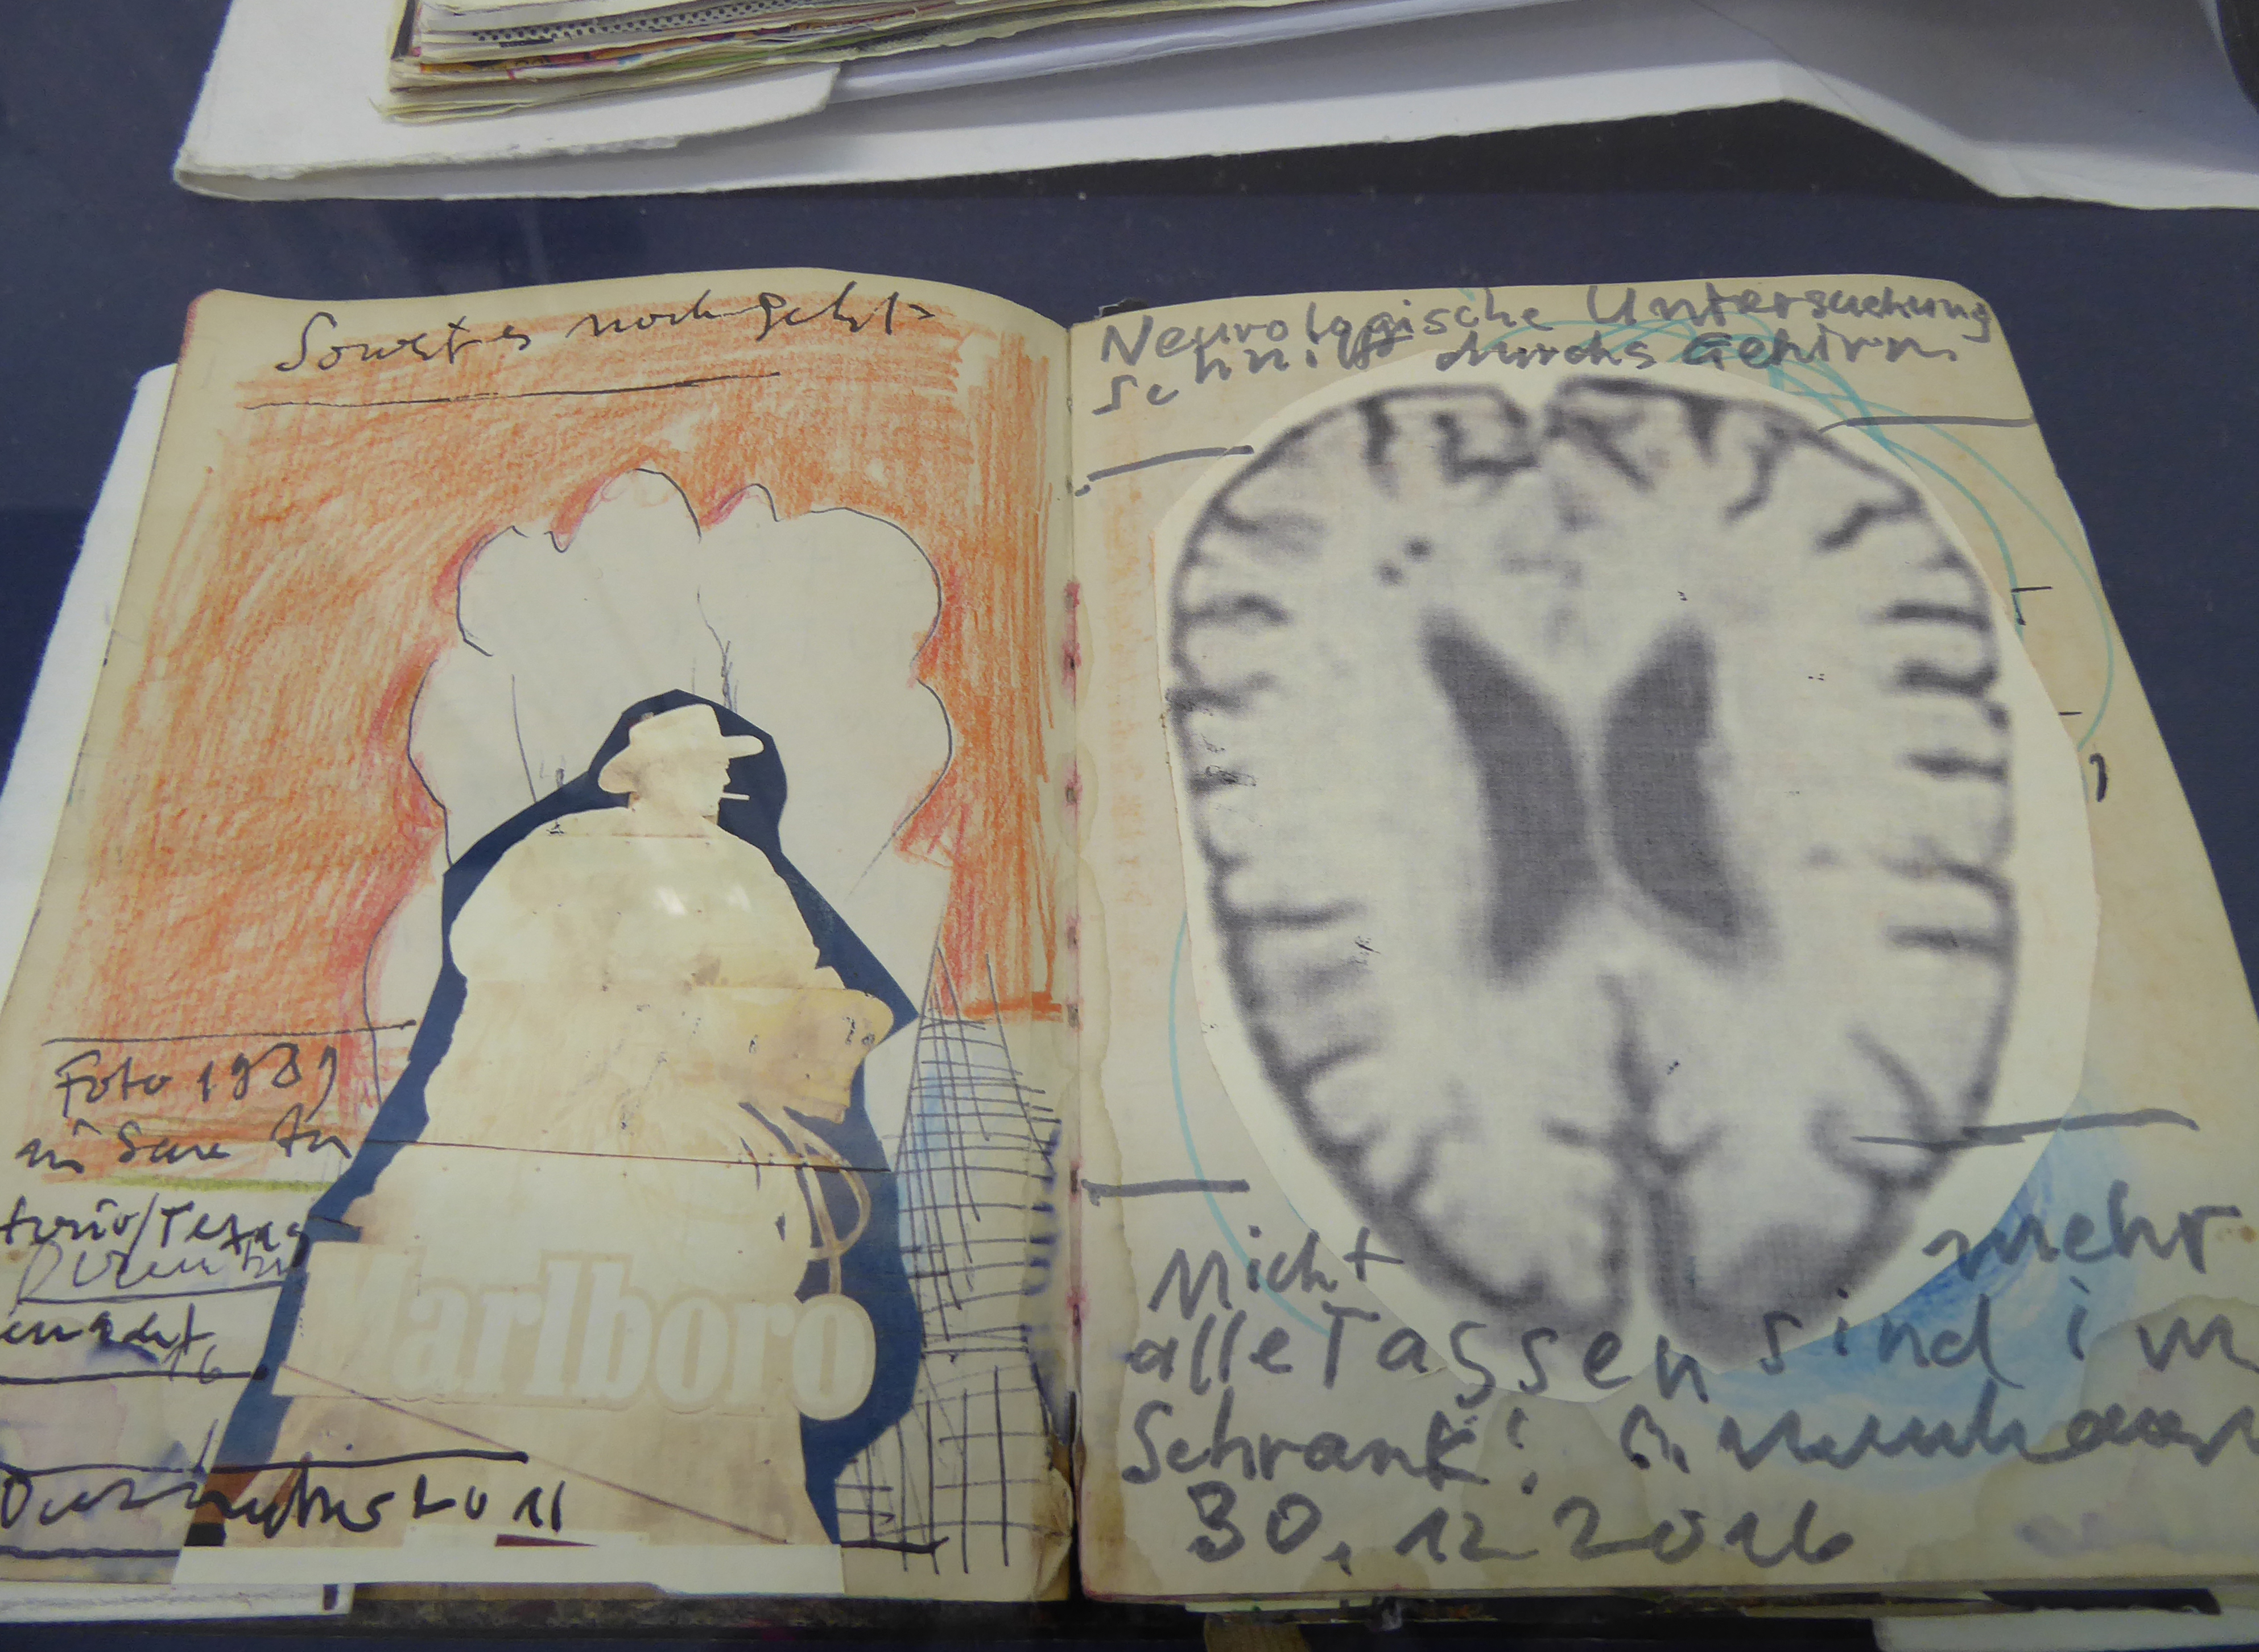 Soweit es noch geht
Foto 1989
in San An
tonio/Texas
Marlboro
Neurologische Untersuchung
Schnitt durchs Gehirn
Nicht mehr
alle Tassen sind im
Schrank!
30. 12 2016